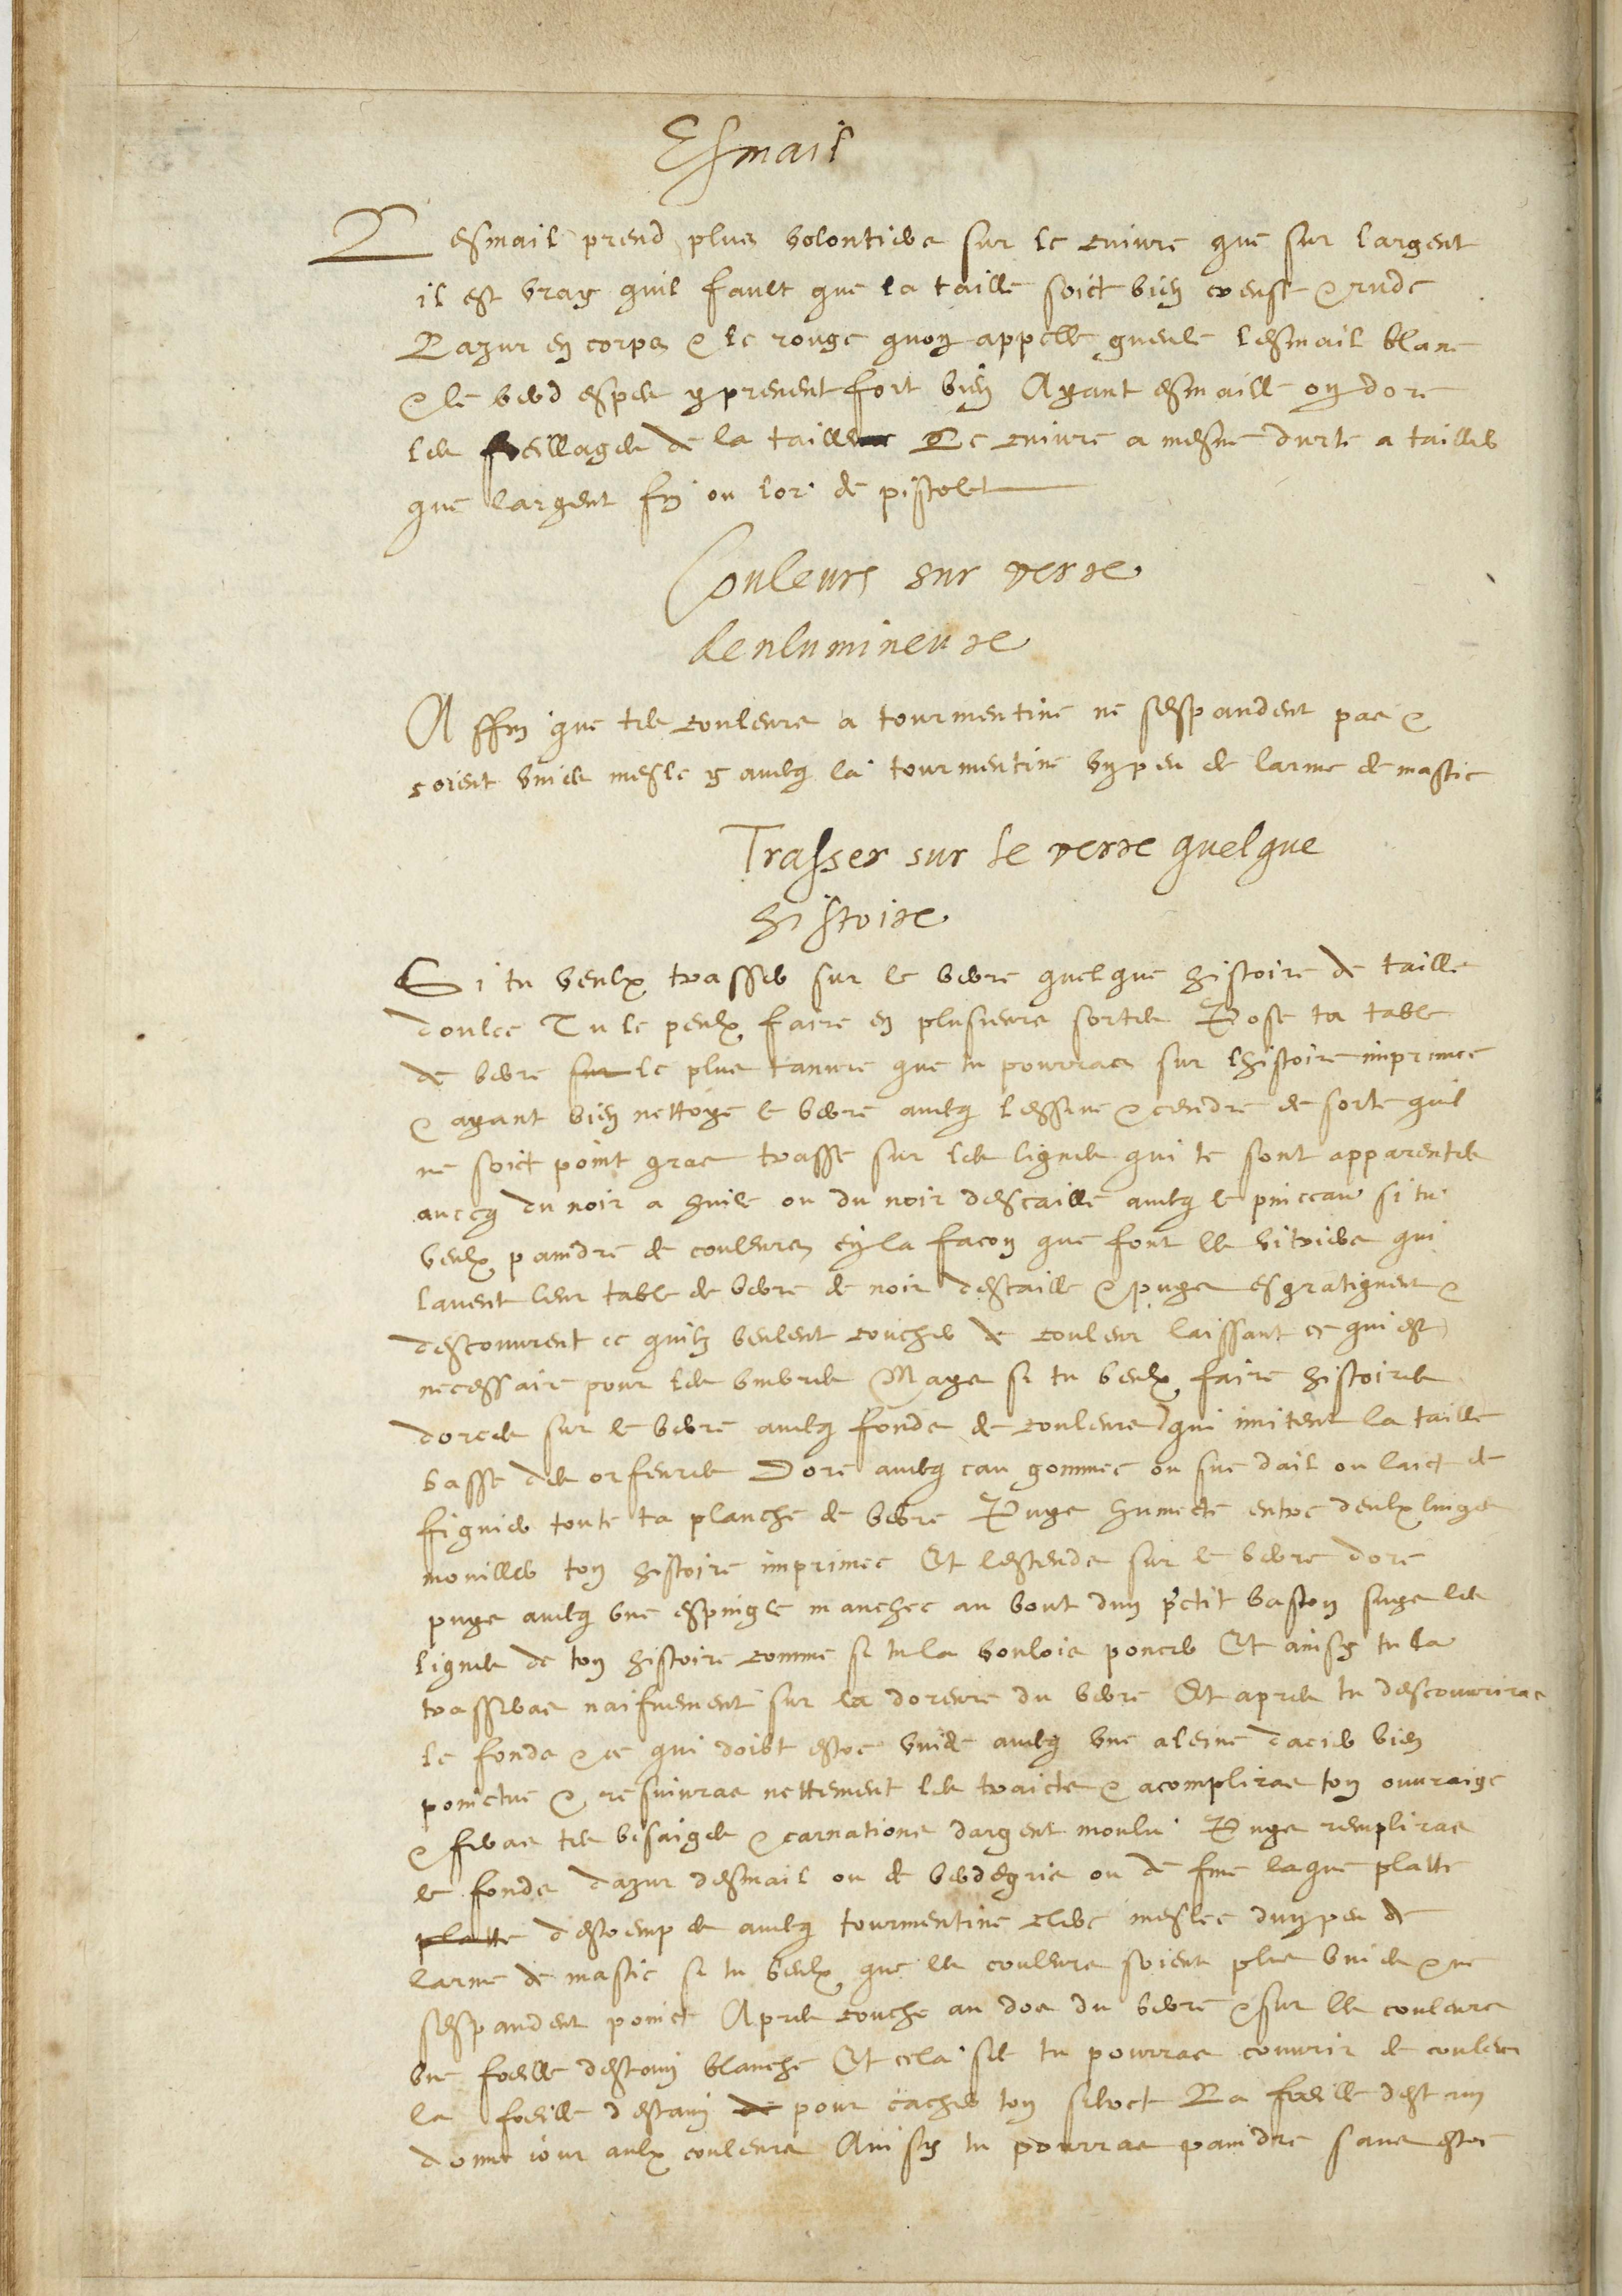 Esmail
Lesmail prend plus volontiers sur le cuivre que sur largent
il est vray quil fault que la taille soict bien creuse & rude
Lazur en corps & le rouge quon appelle gueule lesmail blanc
& le verd espes y prenent fort bien Ayant esmaille on dore
les foeillages de la taille Le cuivre a mesme durte a tailler
que largent fin ou lor de pistolet
Couleurs sur verre
denlumineure
Affin que tes couleurs a tourmentine ne sespandent pas &
soient unies mesle y avecq la tourmentine un peu de larme de mastic
Trasser sur le verre quelque
histoire
Si tu veulx trasser sur le verre quelque histoire de taille
doulce Tu le peulx faire en plusieurs sortes Pose ta table
de verre sur le plus tanvre que tu pourras sur lhistoire imprimee
& ayant bien nettoye le verre avecq lessive & cendre de sorte quil
ne soict point gras trasse sur les lignes qui te sont apparentes
avecq du noir a huile ou du noir descaille avecq le pinceau si tu
veulx paindre de couleurs en la facon que font les vitriers qui
lavent leur table de verre de noir descaille & puys esgratignent &
descouvrent ce quilz veulent coucher de couleur laissant ce qui est
necessaire pour les umbres Mays si tu veulx faire histoires
dorees sur le verre avecq fonds de couleurs qui imitent la taille
basse des orfevres Dore avecq eau gommee ou suc dail ou laict de
figuier toute ta planche de verre Puys humecte entre deulx linges
mouilles ton histoire imprimee Et lestends sur le verre dore
puys avecq une espingle manchee au bout dun petit baston suys les
lignes de ton histoire comme si tu la voulois poncer Et ainsy tu la
trasseras naifvement sur la doreure du verre Et apres tu descouvriras
le fonds & ce qui doibt estre vuide avecq une aleine dacier bien
poinctue & resuivras nettement les traicts & acompliras ton ouvraige
& feras tes visaiges & carnations dargent moulu Puys rempliras
le fonds dazur desmail ou de verdegris ou de fine laque platte
platte destrempes avecq tourmentine clere meslee dun peu de
larme de mastic si tu veulx que les couleurs soient plus unies & ne
sespandent poinct Apres couche au dos du verre & sur les couleurs
une foeille destain blanche Et cela sec tu pourras couvrir de couleur
la foeille destain de pour cacher ton secret La foeille destain
donne jour aulx couleurs Ainsy tu pourras paindre sans estre